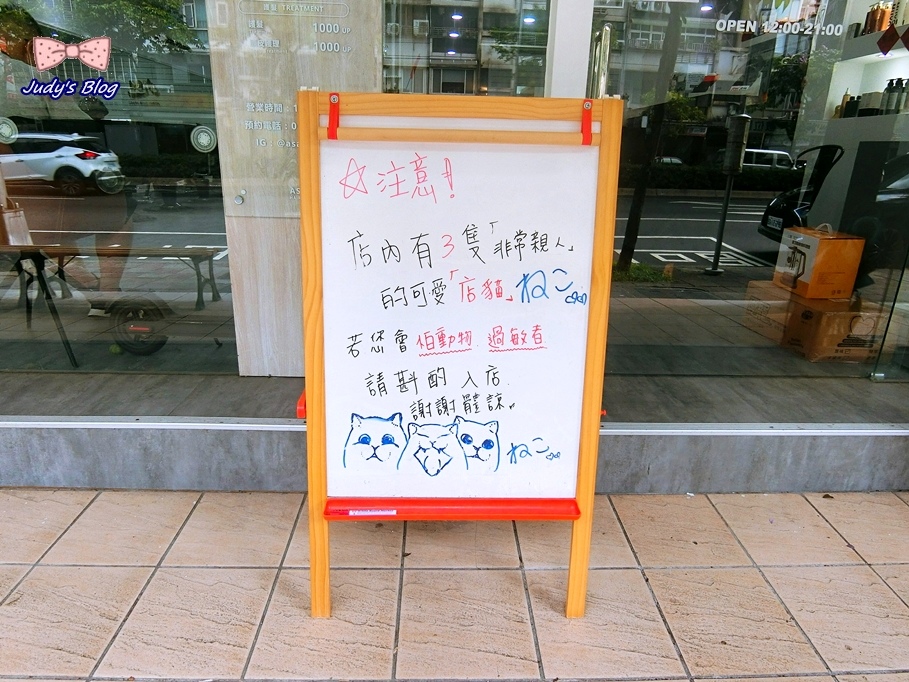 Judy's Blog
護髮 TREATMENT
1000 UP
1000 UP
營業時間：1
預約電話：0
IG：@as
OPEN 12:00-21:00
☆注意!
店內有3隻「非常親人」
的可愛「店貓」ねこ
若您會怕動物 過敏者
請斟酌入店.
謝謝體諒。
ねこ